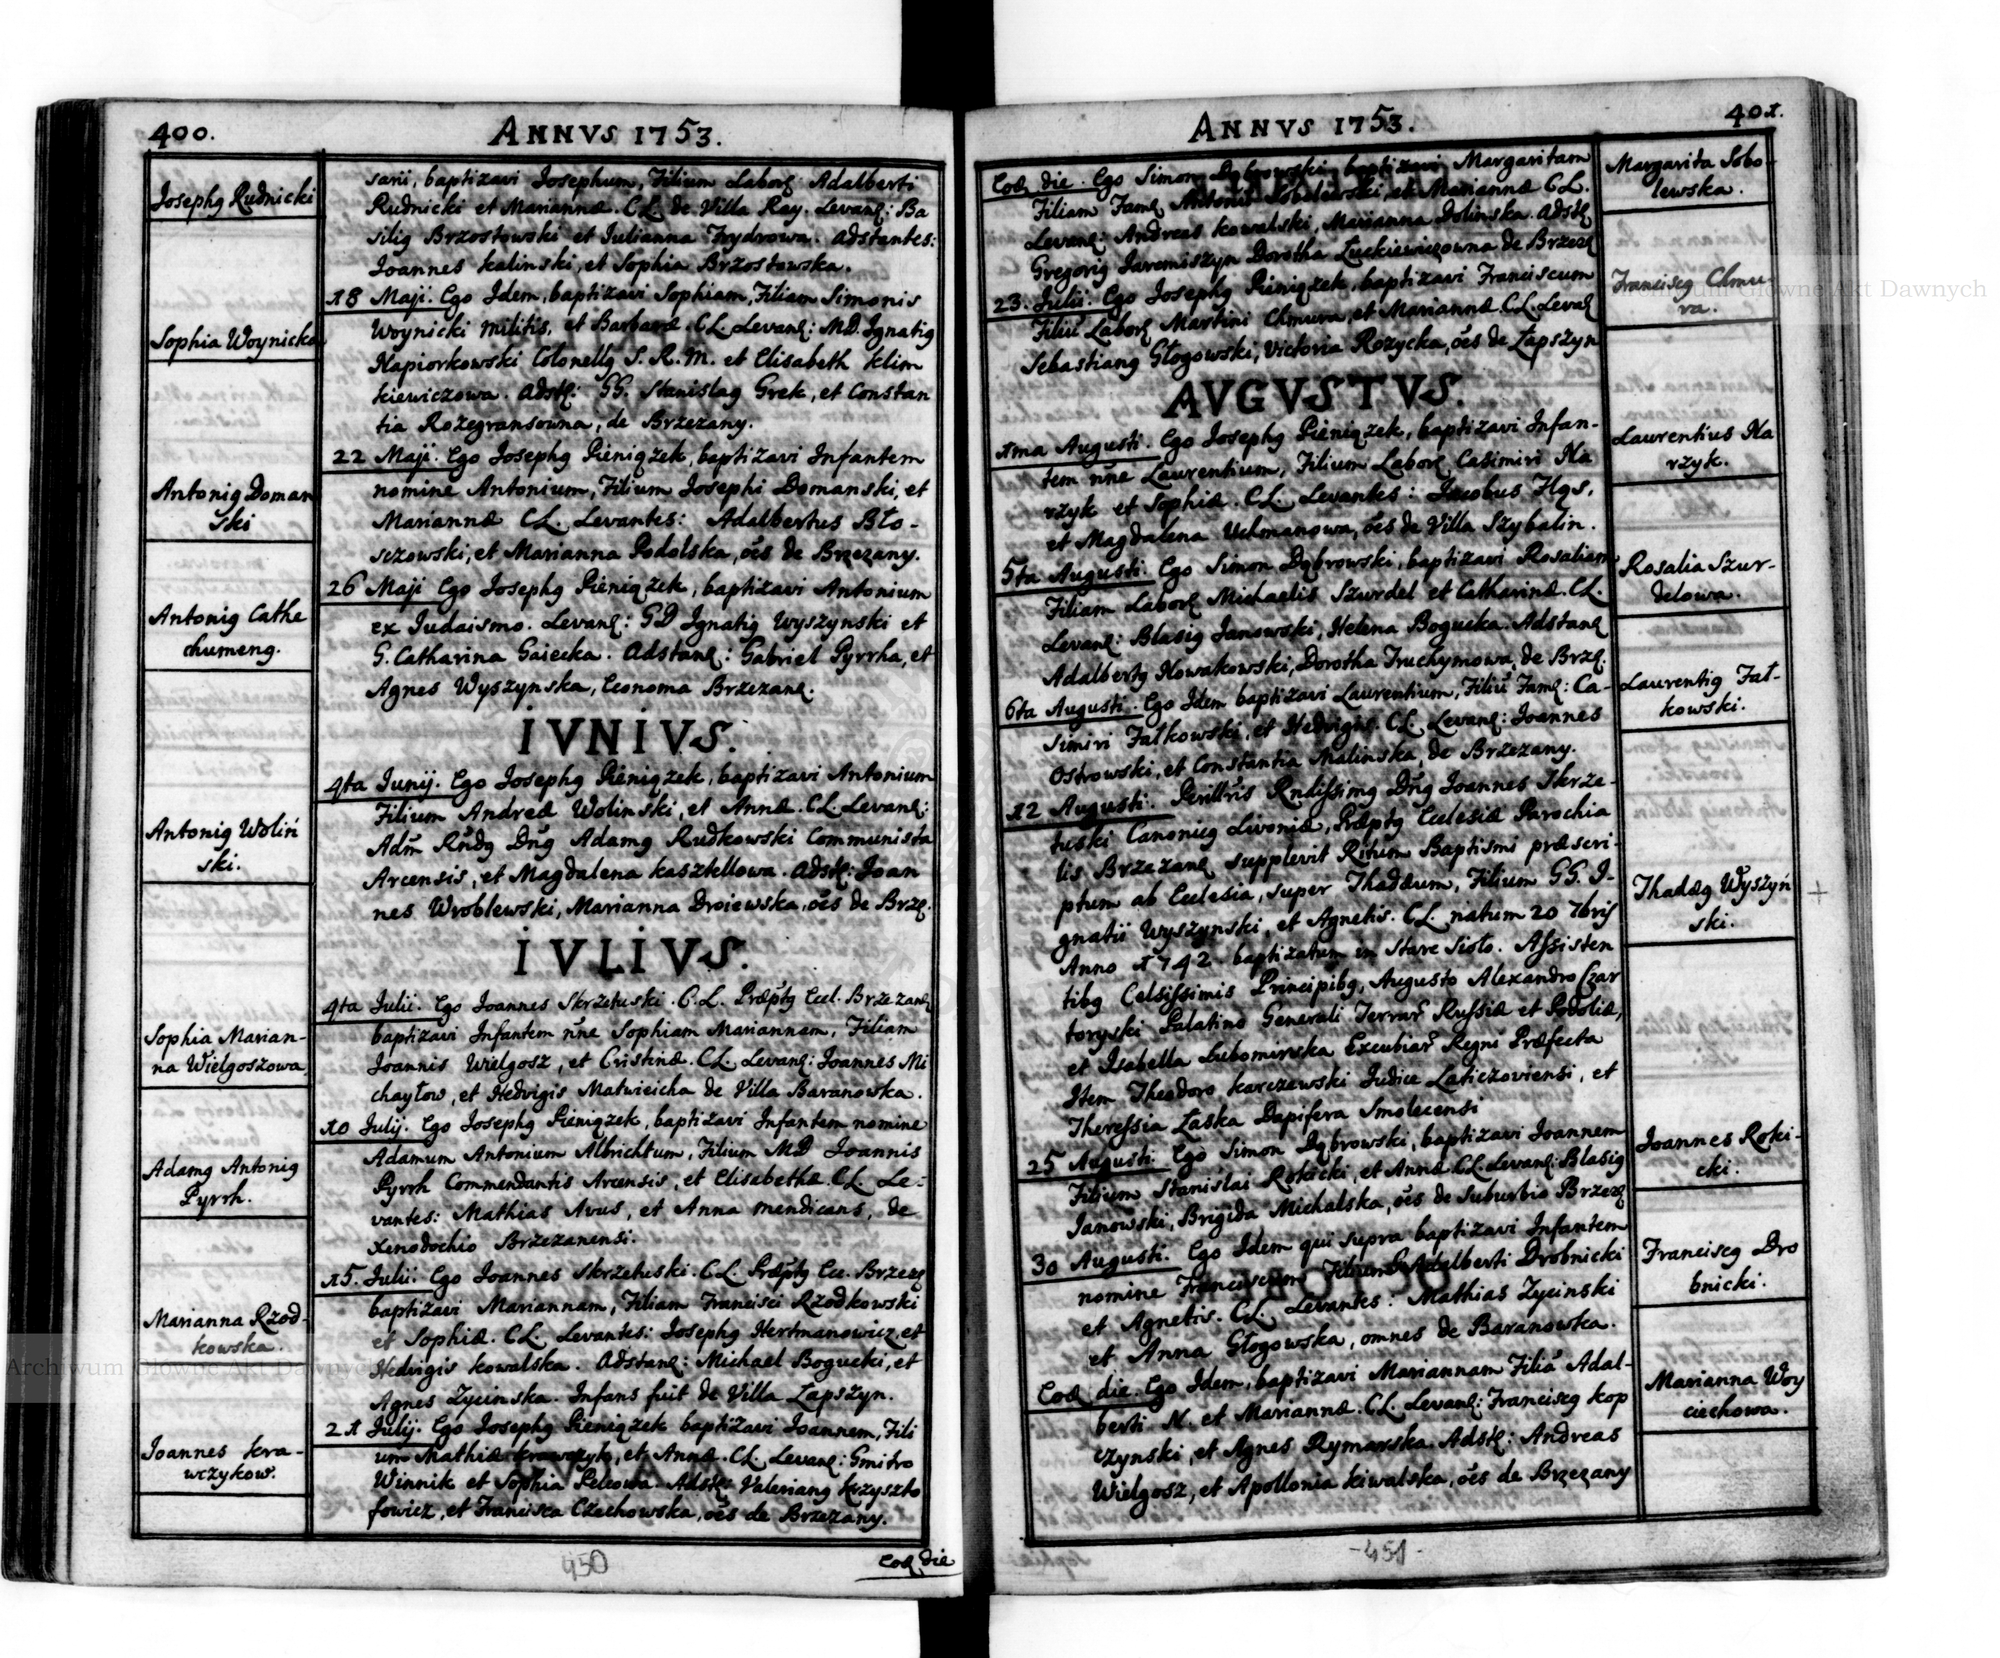 400.
ANNVS 1753.
Josephꝰ Rudnicki
sarii, baptizavi Josephum, Filium Laborꝭ Adalberti
Rudnicki et Mariannæ. C.L. de Villa Ray. Levanꝭ: Ba
siliꝰ Brzostowski et Iulianna Frydrowa. Adstantes:
Joannes Kalinski, et Sophia Brzostowska.
Sophia Woynicka
18 Maji. Ego Idem, baptizavi Sophiam, Filiam Simonis
Woynicki militis, et Barbaræ. C.L. Levanꝭ: MD. Ignatiꝰ
Napiorkowski Colonellꝰ S. R. M. et Elisabeth Klim
kiewiczowa. Adstꝭ: GG. Stanislaꝰ Grek, et Constan
tia Rozegransowna, de Brzezany.
Antoniꝰ Doman
ski
22 Maji. Ego Josephꝰ Pieniązek, baptizavi Infantem
nomine Antonium, Filium Josephi Domanski, et
Mariannæ C.L. Levantes: Adalbertus Bło-
szowski, et Marianna Podolska, oes de Brzezany.
Antoniꝰ Cathe
chumenꝰ.
26 Maji Ego Josephꝰ Pieniązek, baptizavi Antonium
ex Iudaismo. Levanꝭ: GD Ignatiꝰ Wyszynski et
G. Catharina Gaiecka. Adstanꝭ: Gabriel Pyrrha, et
Agnes Wyszynska, Economa Brzezanꝭ.
IVNIVS.
Antoniꝰ Woliń
ski.
4ta Iunij. Ego Josephꝰ Pieniązek, baptizavi Antonium
Filium Andreæ Wolinski, et Annæ. C.L. Levanꝭ:
Adm̃ Rñdꝰ Dñꝰ Adamꝰ Rudkowski Communista
Arcensis, et Magdalena Kasztellowa. Adstꝭ: Joan
nes Wroblewski, Marianna Droiewska, oẽs de Brzꝭ.
IVLIVS.
Sophia Marian-
na Wielgoszowa
4ta Julii. Ego Joannes Skrzetuski. C.L. Præpꝭtꝰ Eccl. Brzezanꝭ
baptizavi Infantem ñne Sophiam Mariannam, Filiam
Joannis Wielgosz, et Cristinæ. C.L. Levanꝭ: Joannes Mi
chayłow, et Hedvigis Matwieicha de Villa Baranowka.
Adamꝰ Antoniꝰ
Pyrrh.
10 Julij. Ego Josephꝰ Pieniązek, baptizavi Infantem nomine
Adamum Antonium Albrichtum, Filium MD Joannis
Pyrrh Commendantis Arcensis, et Elisabethæ. C.L. Le-
vantes: Mathias Avus, et Anna mendicans, de
Xenodochio Brzezanensi.
Marianna Rzod-
kowska.
15. Julii. Ego Joannes Skrzetuski. C.L. Præpꝭtꝰ Ecc. Brzezꝭ
baptizavi Mariannam, Filiam Francisci Rzodkowski
et Sophiæ. C.L. Levantes: Josephꝰ Hertmanowicz, et
Hedvigis Kowalska. Adstanꝭ: Michael Bogucki, et
Agnes Zycinska. Infans fuit de Villa Łapszyn.
Joannes Kra-
wczykow.
21 Julij. Ego Josephꝰ Pieniązek baptizavi Joannem, Fili
um Mathiæ Krawczyk, et Annæ. C.L. Levanꝭ: Gmitro
Winnik et Sophia Pelcowa. Adstꝭ: Valerianꝰ Krzyszto
fowicz, et Francisca Czechowska, oẽs de Brzezany.
450
Eodꝭ die
401.
ANNVS 1753.
Eodꝭ die. Ego Simon Dąbrowski, baptizavi Margaritam
Filiam Famꝭ Antonii Sobolewski, et Mariannæ C.L.
Levanꝭ: Andreas Kowalski, Marianna Dolinska. Adstꝭ
Gregoriꝰ Jaremiszyn Dorotha Łuckiewiczowna de Brzezꝭ
Margarita Sobo-
lewska.
23. Julii. Ego Josephꝰ Pieniązek, baptizavi Franciscum
Filiũ Laborꝭ Martini Chmura, et Mariannæ C.L. Levaꝭ
Sebastianꝰ Głogowski, Victoria Rozycka, oẽs de Łapszyn
Franciscꝰ Chmu-
ra.
AVGVSTVS.
1ma Augusti. Ego Josephꝰ Pieniązek, baptizavi Infan-
tem ñne Laurentium, Filium Laborꝭ Casimiri Na
rzyk et Sophiæ. C.L. Levantes: Jacobus Hąs,
et Magdalena Uchmanowa, oẽs de Villa Szybalin.
Laurentius Na
rzyk.
5ta Augusti. Ego Simon Dąbrowski, baptizavi Rosaliam
Filiam Laborꝭ Michaelis Szwrdel et Catharinæ. C.L.
Levanꝭ: Blasiꝰ Janowski, Helena Bogucka. Adstanꝭ
Adalbertꝰ Nowakowski, Dorotha Truchymowa, de Brzꝭ.
Rosalia Szur-
delowa.
6ta Augusti. Ego Idem baptizavi Laurentium, Filiũ Famꝭ: Ca-
simiri Fałkowski, et Hedvigis. C.L. Levanꝭ: Joannes
Ostrowski, et Constantia Malinska, de Brzezany.
Laurentiꝰ Fał-
kowski.
12 Augusti. Perillr̃is Rndissimꝰ Dñꝰ Joannes Skrze-
tuski Canonicꝰ Livoniæ, Præptꝰ Ecclesiæ Parochia
lis Brzezanꝭ supplevit Ritum Baptismi præscri-
ptum ab Ecclesia, super Thadæum, Filium GG. I-
gnatii Wyszynski, et Agnetis. C.L. natum 20 7bris
Anno 1742 baptizatum in Stare Sioło. Assisten
tibꝰ Celsissimis Principibꝰ, Augusto Alexandro Czar
toryski Palatino Generali Terrar̃ Russiæ et Podoliæ,
et Isabella Lubomirska Excubiar̃ Regni Præfecta
Item Theodoro Karczewski Iudice Laticzoviensi, et
Theressia Łaska Dapifera Smolecensi
Thadæꝰ Wyszyń
ski.
25 Augusti. Ego Simon Dąbrowski, baptizavi Joannem
Filium Stanislai Rokicki, et Annæ. C.L. Levanꝭ: Blasiꝰ
Janowski, Brigida Michalska, oẽs de Suburbio Brzezꝭ
Joannes Roki-
cki.
30 Augusti. Ego Idem qui supra baptizavi Infantem
nomine Franciscum Filium Adalberti Drobnicki
et Agnetis. C.L. Levantes: Mathias Zycinski
et Anna Głogowska, omnes de Baranowka.
Franciscꝰ Dro
bnicki.
Eodꝭ die. Ego Idem, baptizavi Mariannam Filiã Adal-
berti N. et Mariannæ. C.L. Levanꝭ: Franciscꝰ Kop
czynski, et Agnes Rymarska. Adstꝭ: Andreas
Wielgosz, et Apollonia Kiwalska, oẽs de Brzezany
Marianna Woy
ciechowa.
-451-
Archiwum Główne Akt Dawnych
Archiwum Główne Akt Dawnych